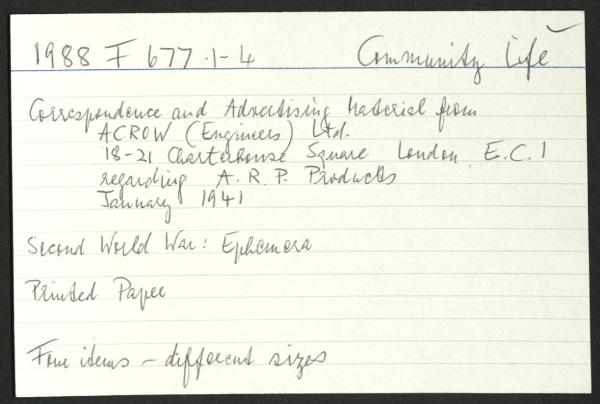 1988 F 677 .1-4 Community Life
Correspondence and Advertising Material from
ACROW (Engineers) Ltd.
18-21 Charterhouse Square London E.C.1
regarding A.R.P. Products
January 1941
Second World War: Ephemera
Printed Paper
Four items - different sizes